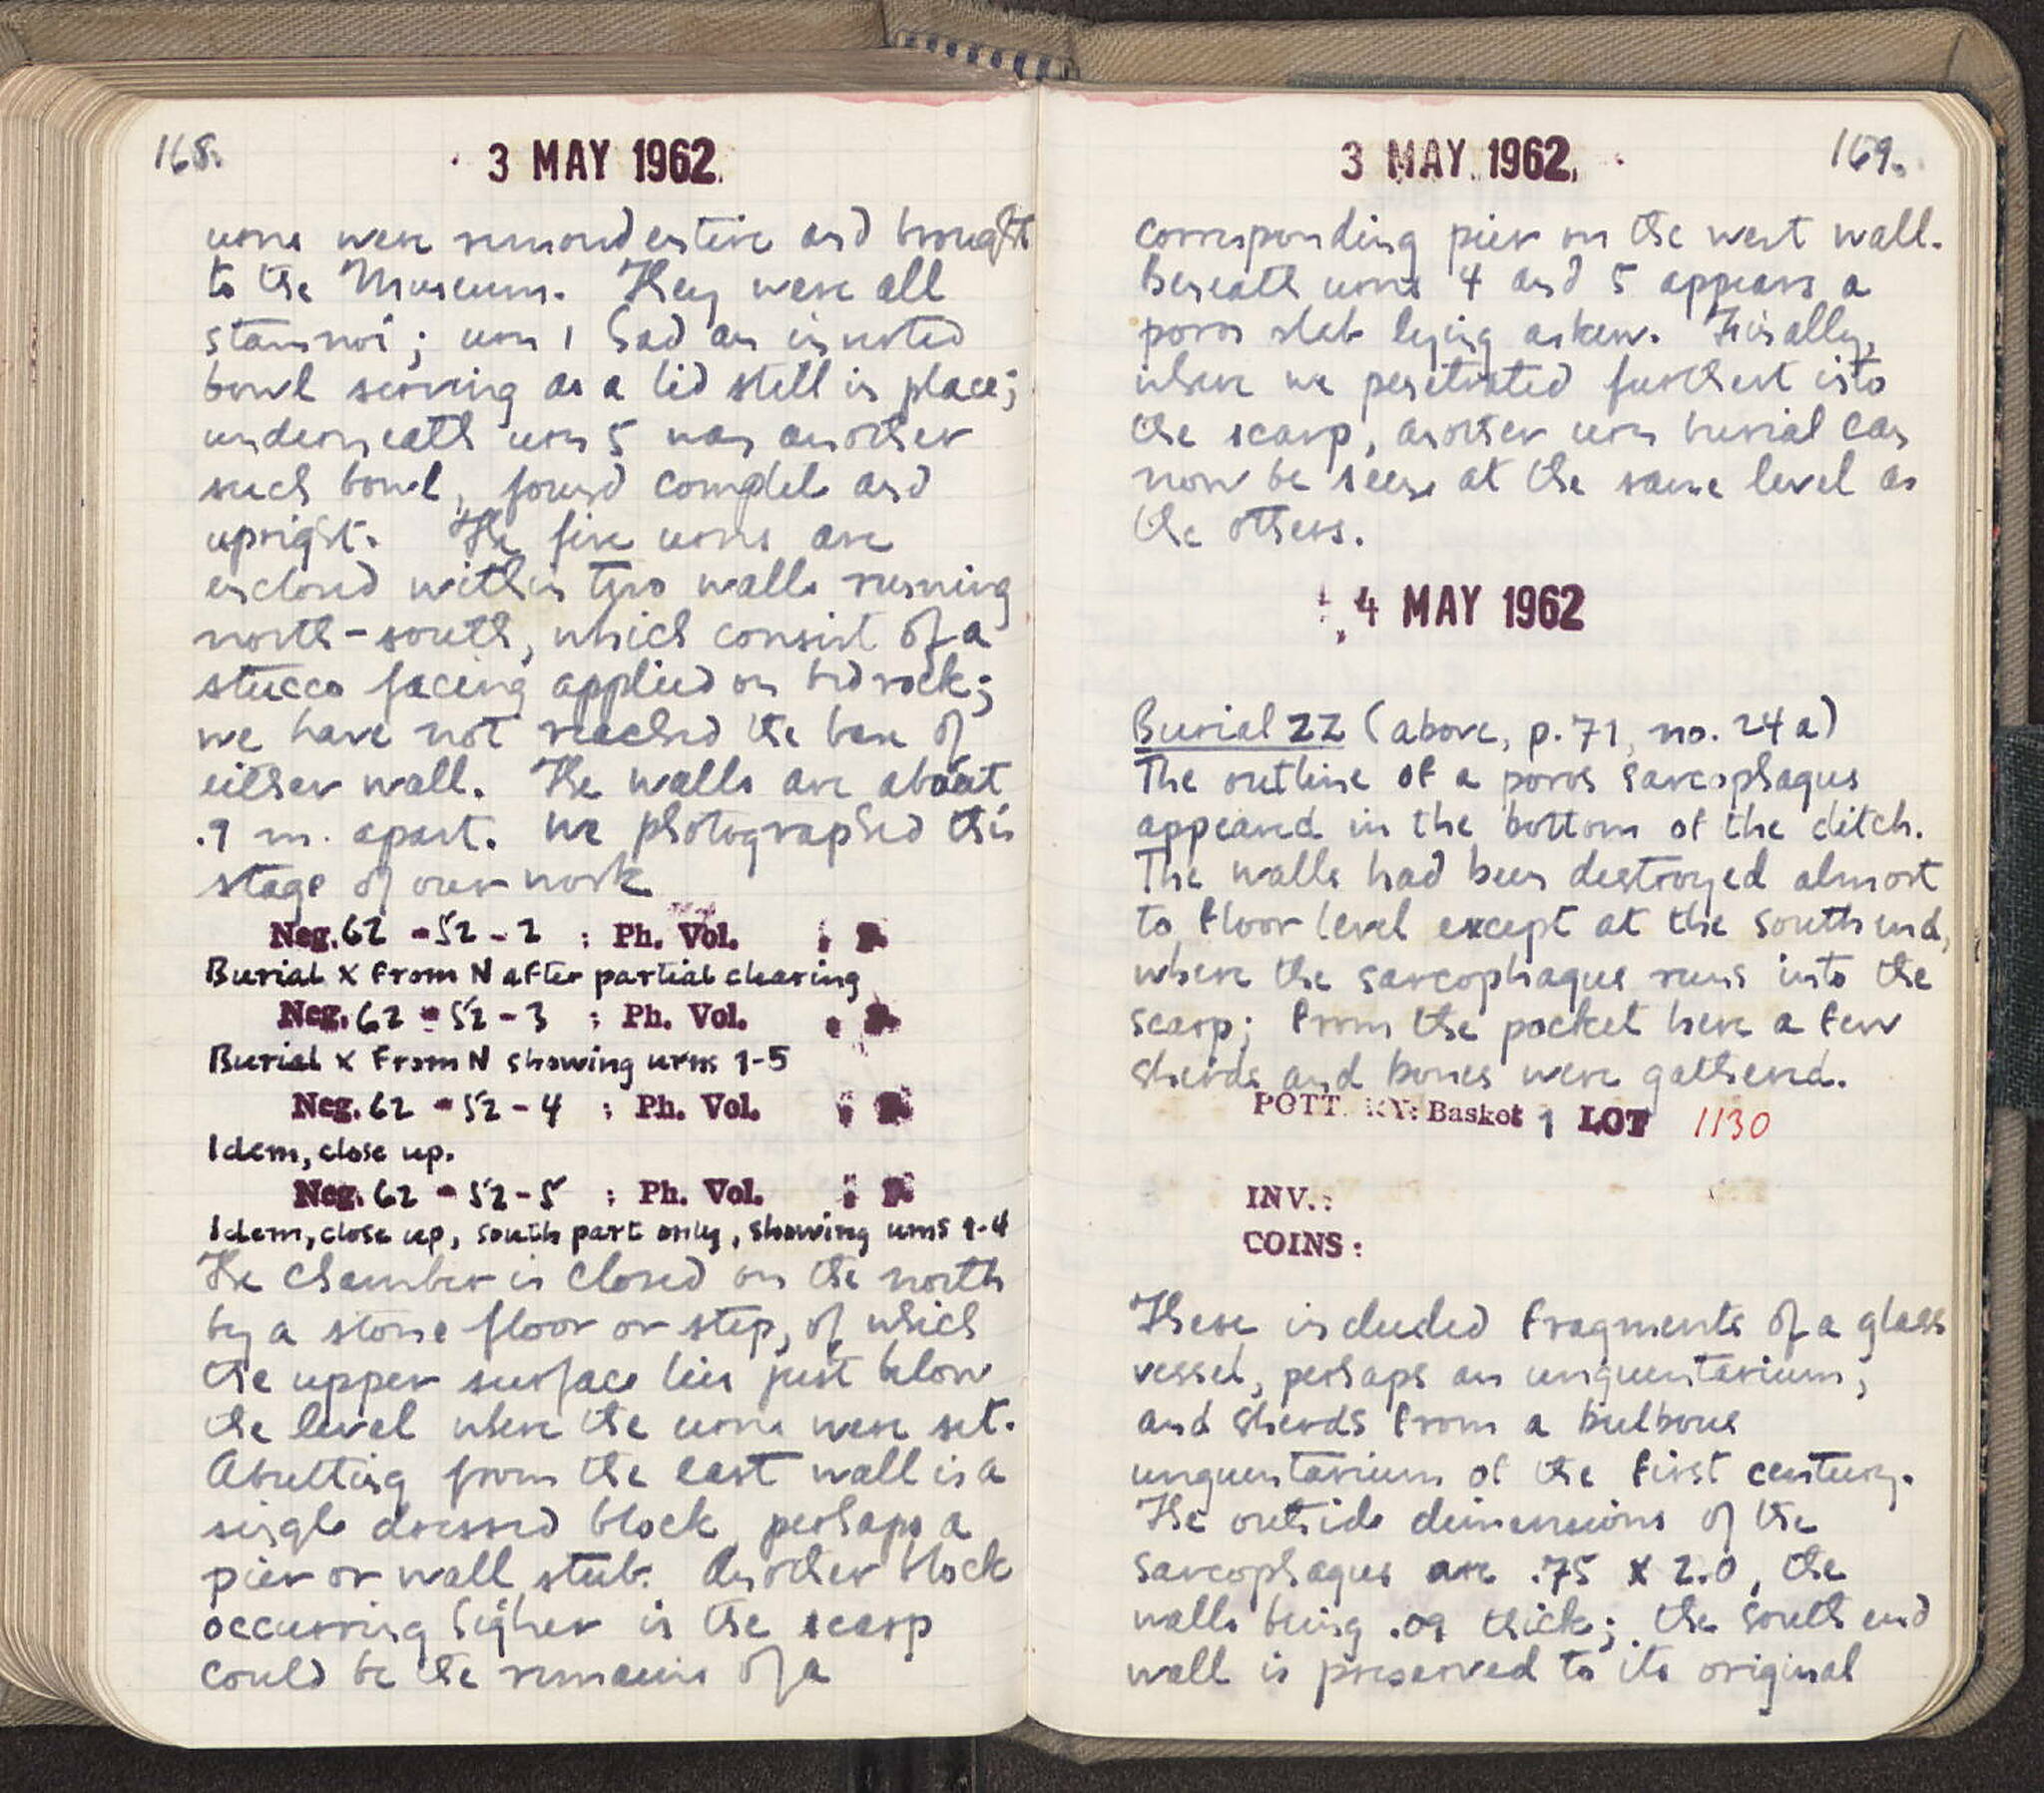 168.
3 MAY 1962
urns were removed entire and brought
to the Museum. They were all
stamnoi; urn 1 had an inverted
bowl serving as a lid still in place;
underneath urn 5 was another
such bowl, found complete and
upright. The five urns are
enclosed within two walls running
north-south, which consist of a
stucco facing applied on bedrock;
we have not reached the base of
either wall. The walls are about
.9 m. apart. We photographed this
stage of our work
Neg. 62 - 52 - 2 : Ph. Vol.
Burial X from N after partial clearing
Neg. 62 - 52 - 3 : Ph. Vol.
Burial X from N showing urns 1-5
Neg. 62 - 52 - 4 : Ph. Vol.
Idem, close up.
Neg. 62 - 52 - 5 : Ph. Vol.
Idem, close up, south part only, showing urns 1-4
The chamber is closed on the north
by a stone floor or step, of which
the upper surface lies just below
the level where the urns were set.
Abutting from the east wall is a
single dressed block, perhaps a
pier or wall stub. Another block
occurring higher in the scarp
could be the remains of a
3 MAY 1962
169.
corresponding pier on the west wall.
Beneath urns 4 and 5 appears a
poros slab lying askew. Finally,
where we penetrated furthest into
the scarp, another urn burial can
now be seen at the same level as
the others.
4 MAY 1962
Burial ZZ (above, p. 71, no. 24a)
The outline of a poros sarcophagus
appeared in the bottom of the ditch.
The walls had been destroyed almost
to floor level except at the south end,
where the sarcophagus runs into the
scarp; from the pocket here a few
sherds and bones were gathered.
POTTERY: Basket 1 LOT 1130
INV.:
COINS:
These included fragments of a glass
vessel, perhaps an unguentarium;
and sherds from a bulbous
unguentarium of the first century.
The outside dimensions of the
sarcophagus are .75 x 2.0, the
walls being .09 thick; the south end
wall is preserved to its original